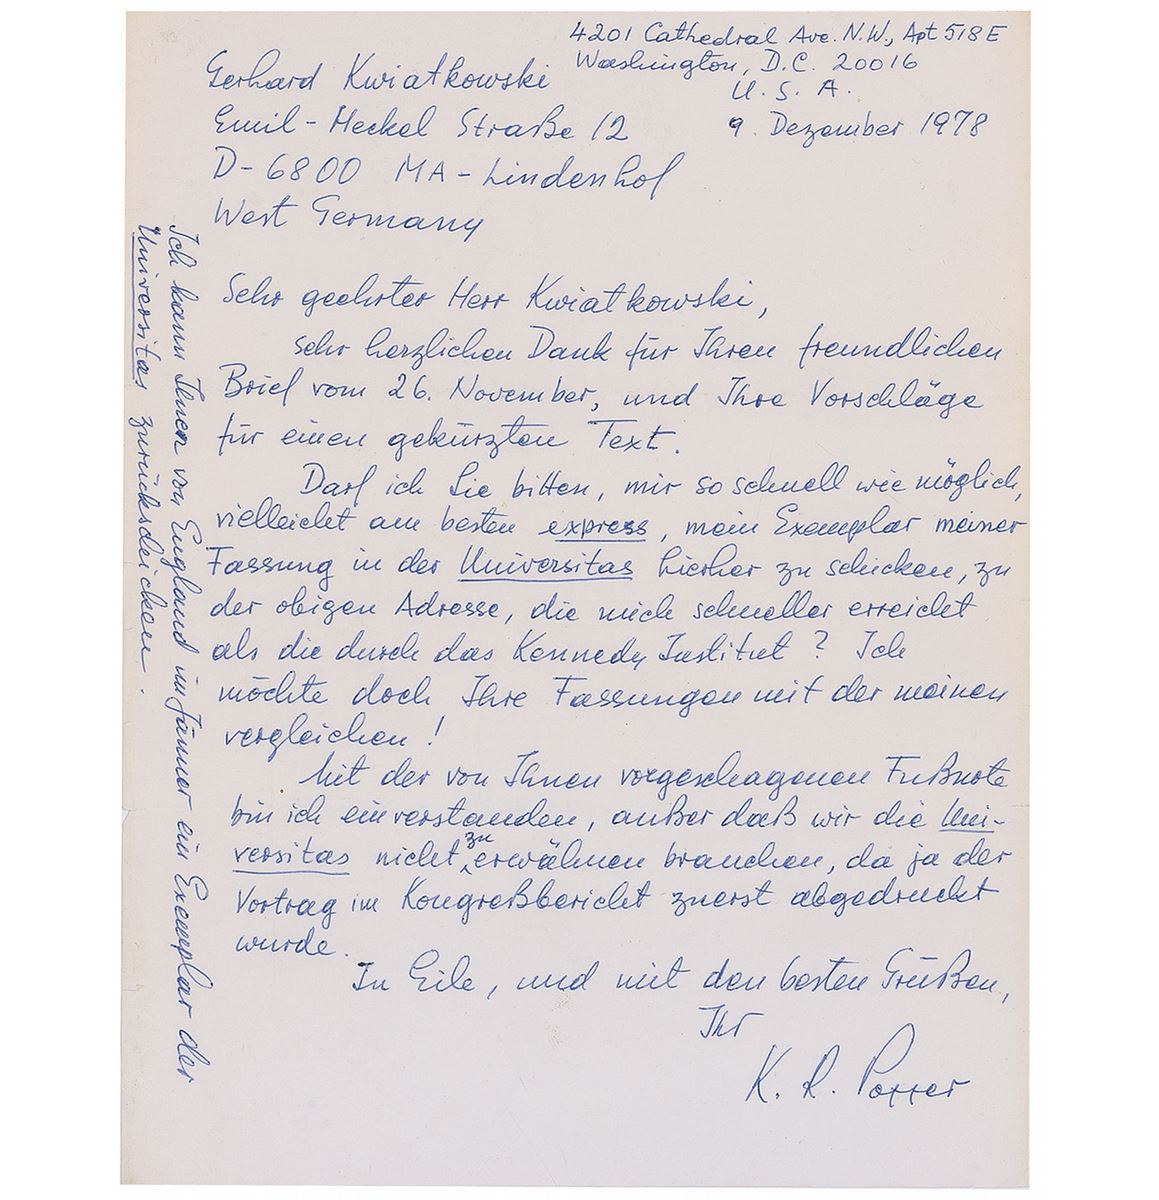 4201 Cathedral Ave. N.W., Apt 518 E
Washington, D.C. 20016
U. S. A.
9. Dezember 1978
Gerhard Kwiatkowski
Emil-Heckel Straße 12
D-6800 MA-Lindenhof
West Germany
Sehr geehrter Herr Kwiatkowski,
sehr herzlichen Dank für Ihren freundlichen
Brief vom 26. November, und Ihre Vorschläge
für einen gekürzten Text.
Darf ich Sie bitten, mir so schnell wie möglich,
vielleicht am besten express, mein Exemplar meiner
Fassung in der Universitas hierher zu schicken, zu
der obigen Adresse, die mich schneller erreicht
als die durch das Kennedy Institut? Ich
möchte doch Ihre Fassungen mit der meinen
vergleichen!
Mit der von Ihnen vorgeschlagenen Fußnote
bin ich einverstanden, außer daß wir die Uni-
versitas nicht zu erwähnen brauchen, da ja der
Vortrag im Kongreßbericht zuerst abgedruckt
wurde.
In Eile, und mit den besten Grüßen,
Ihr
K. R. Popper
Ich kann Ihnen von England im Jänner ein Exemplar der
Universitas zurückschicken.